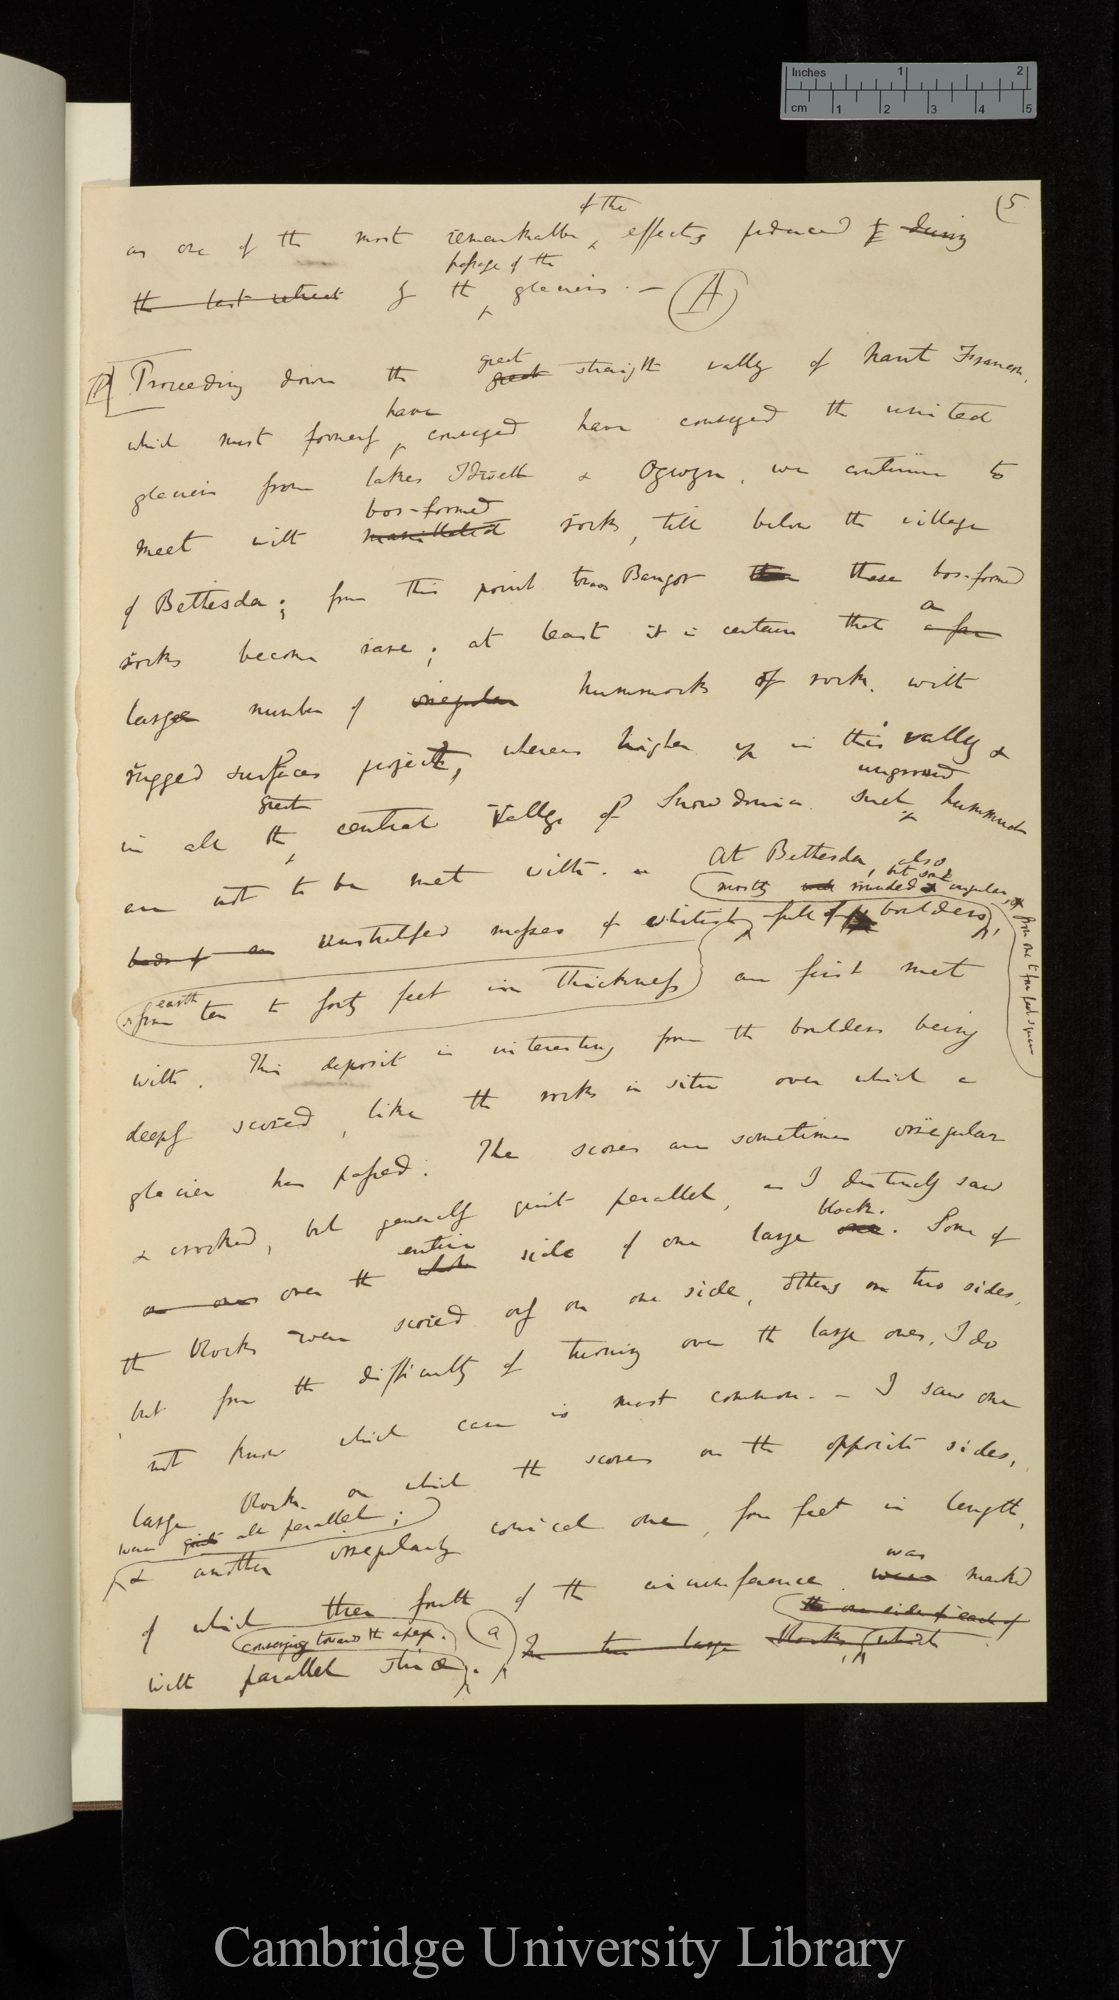 Inches 1 2
cm 1 2 3 4 5
5
of the
as one of the most remarkable effects produced by during
passage of the
the last retreat of the glaciers. — A
great
Proceeding down the great straight valley of Nant Francon,
have
which must formerly conveyed have conveyed the united
glaciers from lakes Idwell & Ogwyn, we continue to
bos-formed
meet with mamillated rocks, till below the village
of Bethesda; from this point towards Bangor these bos-formed
a
rocks become rare; at least it is certain that a few
large number of irregular hummocks of rock with
rugged surfaces project, whereas higher up in this valley &
unground
great
in all the central valleys of Snowdonia such hummocks
are not to be met with. — At Bethesda, also
mostly rounded & angular, but some & from one to four feet square
beds of an unstratified masses of whitish full of boulders,
earth
from ten to forty feet in thickness are first met
with. This deposit is interesting from the boulders being
deeply scored, like the rocks in situ over which a
glacier has passed. The scores are sometimes irregular
& crooked, but generally quite parallel, as I distinctly saw
entire
block.
over the whole side of one large one. Some of
the blocks were scored only on one side, others on two sides,
but from the difficulty of turning over the large ones, I do
not know which case is most common. — I saw one
large block on which the scores on the opposite sides,
were quite all parallel;
& another irregularly conical one, four feet in length,
was
of which three fourth of the circumference were marked
converging towards the apex.
a
the one side of each of
with parallel striæ. In two large blocks, which
Cambridge University Library